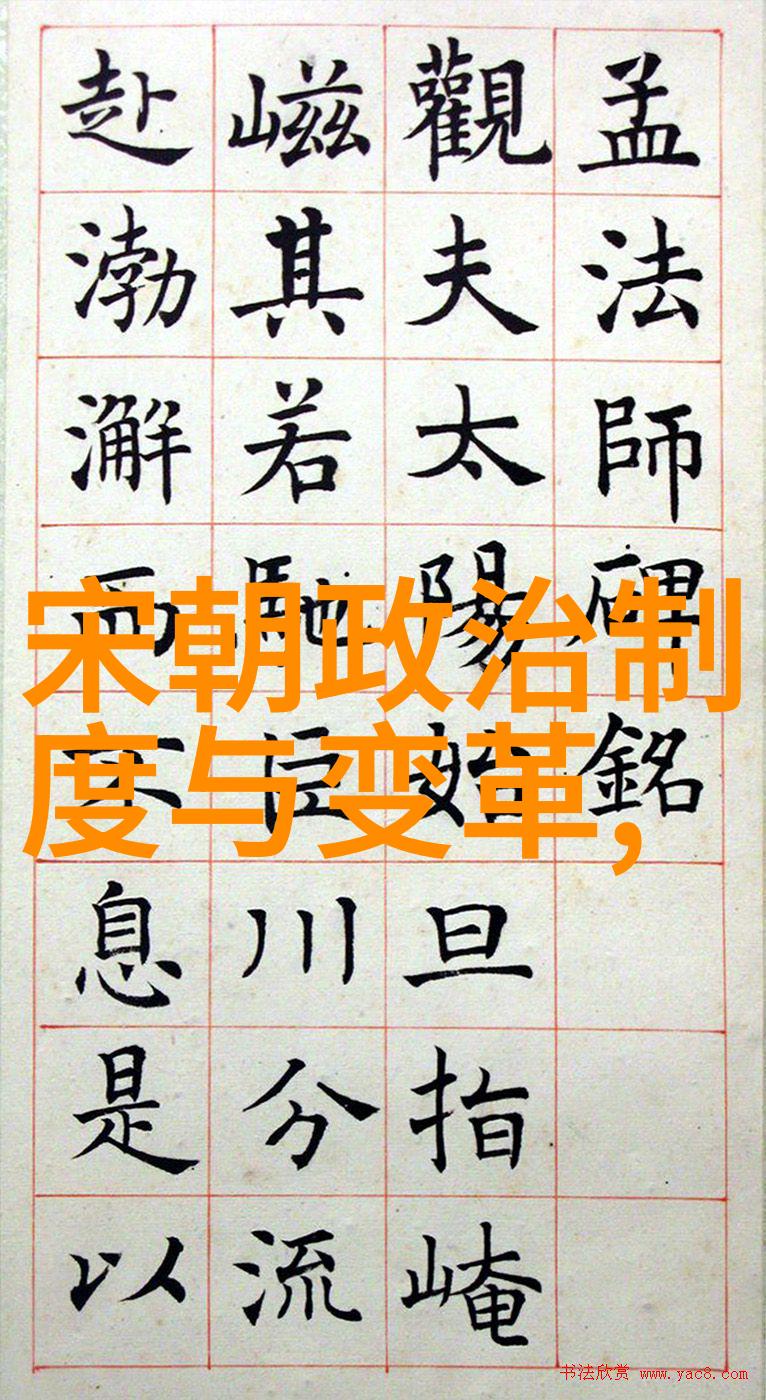 孟法師碑銘
觀夫太陽始旦指崦
嵫其若馳巨川分流
赴渤澥而不息是以
宋朝政治制
度与变革,
书法欣赏 www.yac8.com